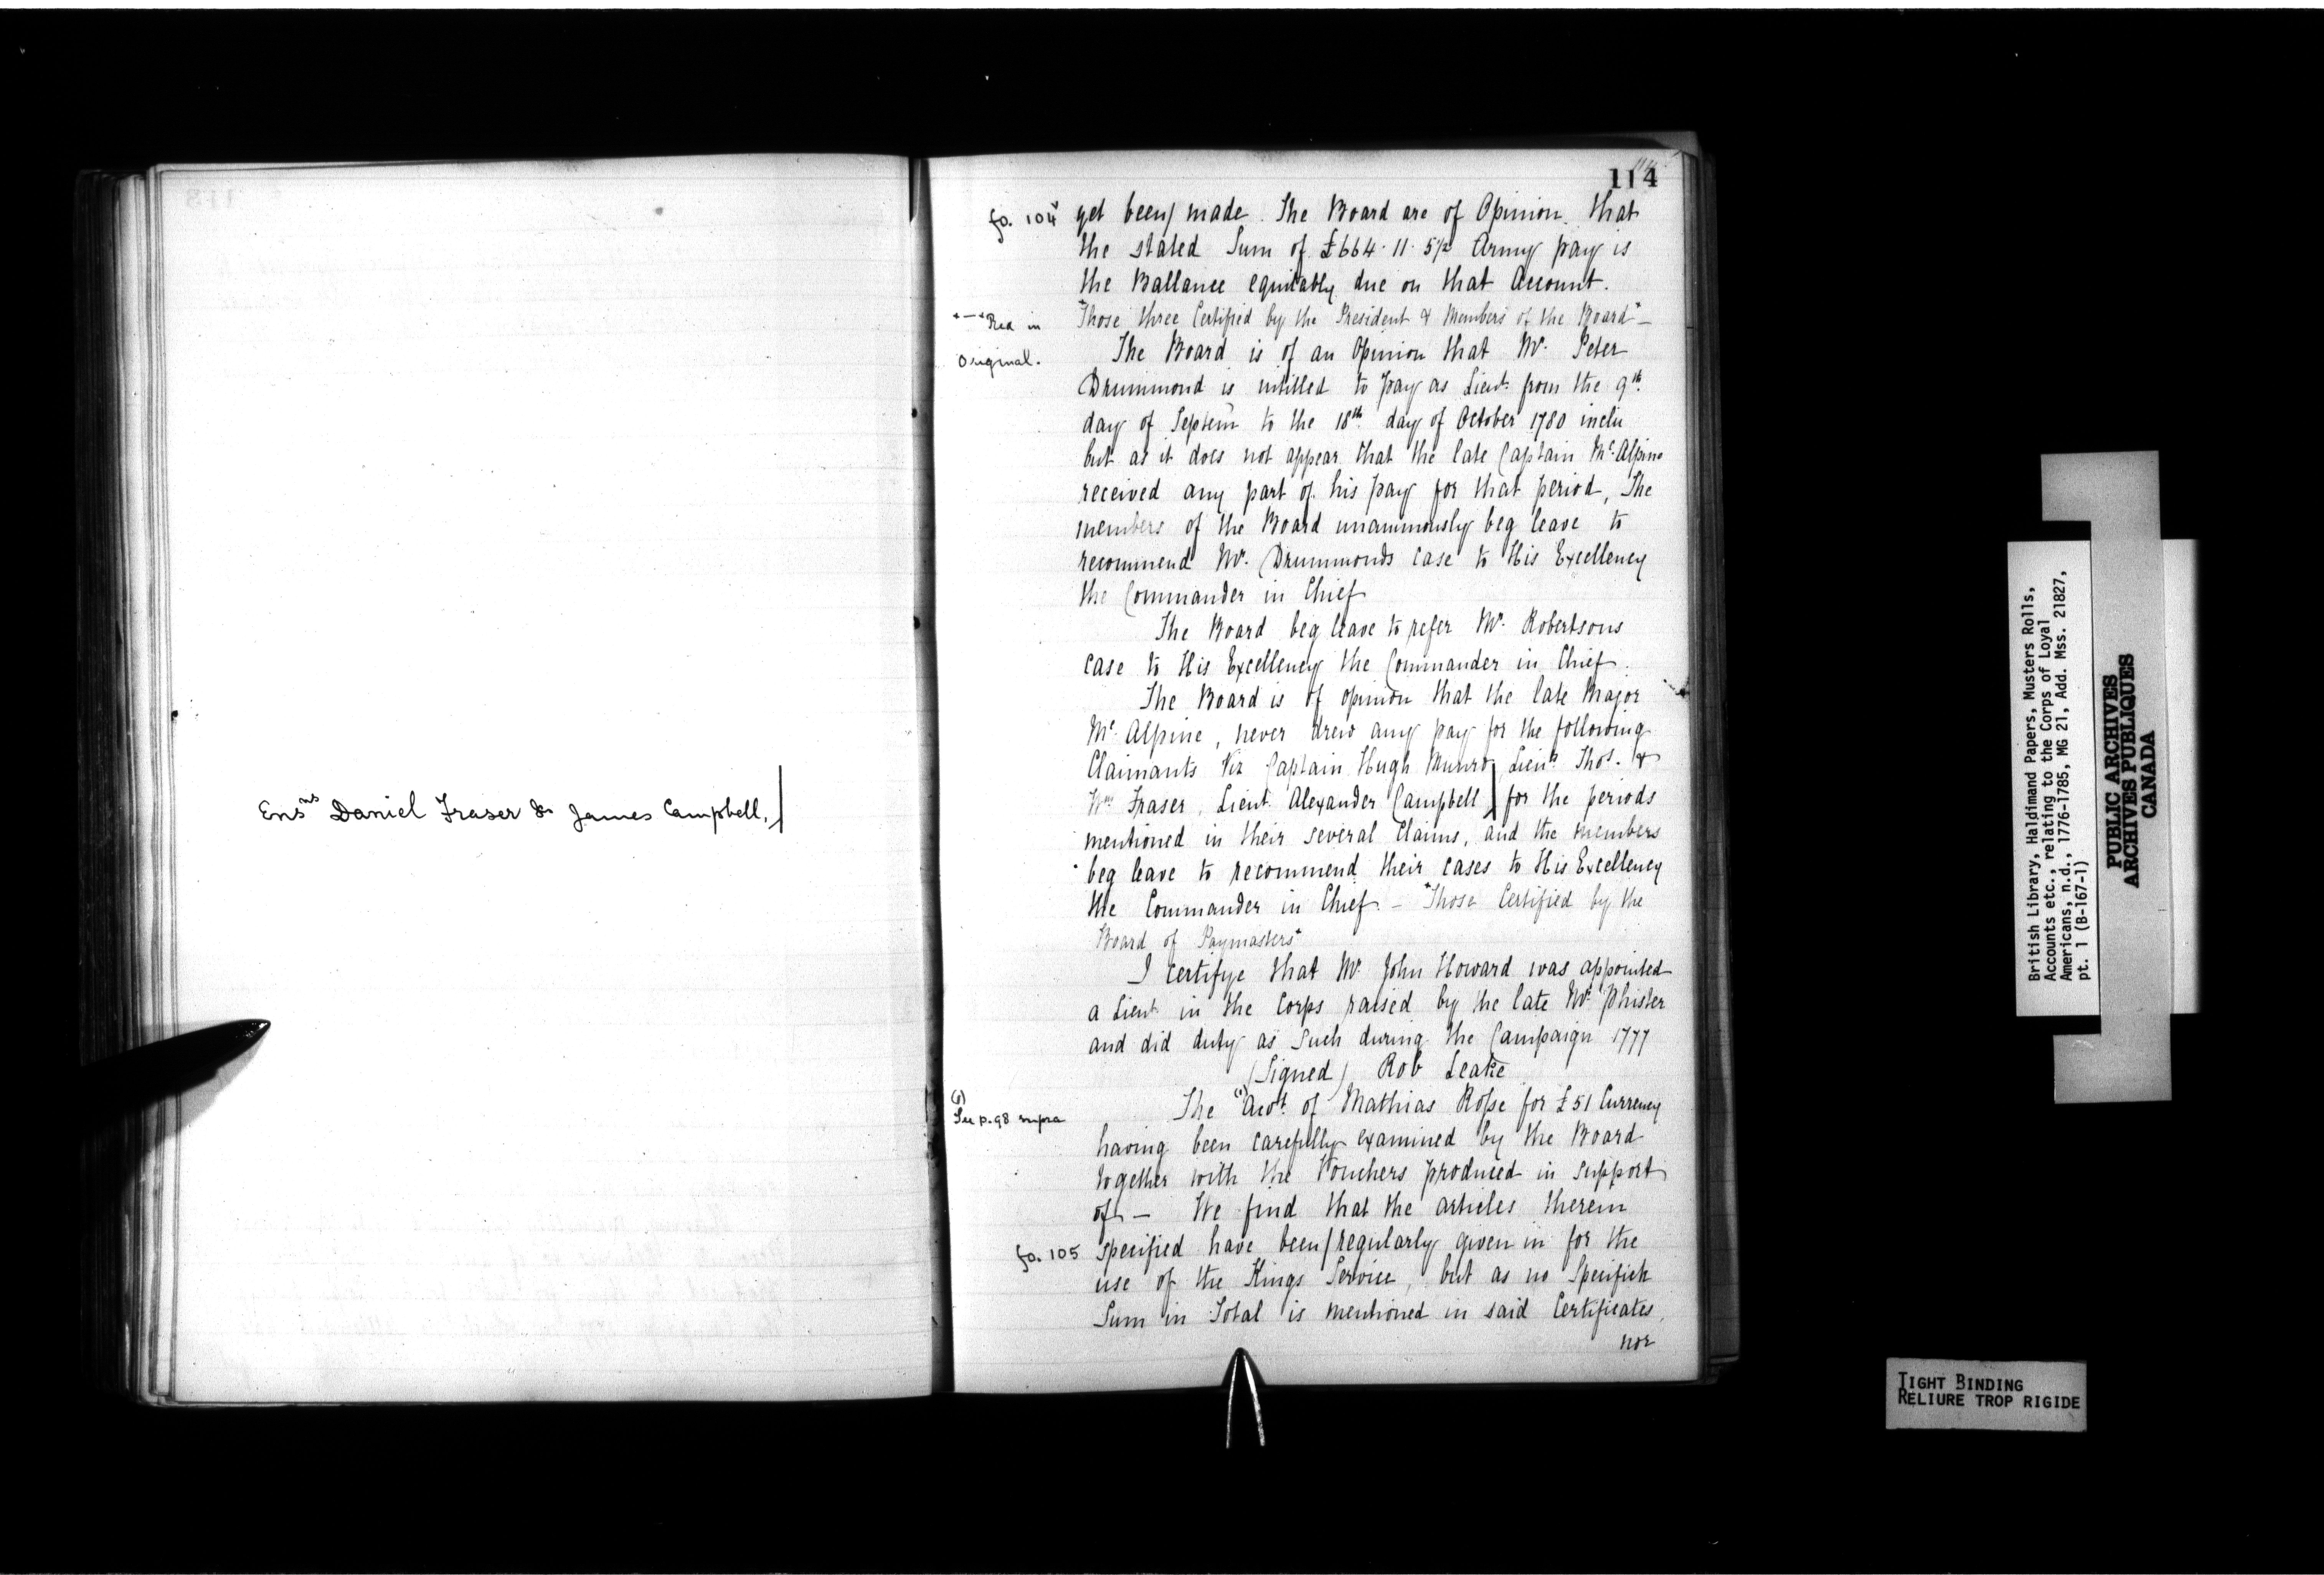 Ensns Daniel Fraser & James Campbell,
114
fo. 104v yet been/ made. The Board are of Opinion that
the stated Sum of £664. 11. 5½ Army pay is
the Ballance equitably due on that Account.
*—* Red in
Original.
*Those three Certified by the President & Members of the Board* —
The Board is of an Opinion that Mr. Peter
Drummond is intitled to pay as Lieut. from the 9th.
day of Septem to the 18th day of October 1780 inclu
but as it does not appear that the late Captain Mc.Alpine
received any part of his pay for that period, The
members of the Board unanimously beg leave to
recommend Mr. Drummonds case to His Excellency
the Commander in Chief
The Board beg leave to refer Mr. Robertsons
case to His Excellency the Commander in Chief.
The Board is of opinion that the late Major
Mc. Alpine, never drew any pay for the following
Claimants Viz Captain Hugh Munro, Lieuts Thos. &
Wm Fraser, Lieut. Alexander Campbell, for the periods
mentioned in their several Claims, and the members
beg leave to recommend their cases to His Excellency
the Commander in Chief. — *Those Certified by the
Board of Paymasters*
I certifye that Mr. John Howard was appointed
a Lieut. in the Corps raised by the late Mr. Phister
and did duty as Such during the Campaign 1777
(Signed) Rob Leake
(1)
See p. 98 supra
The (1)Acot. of Mathias Rose for £51 Currency
having been carefully examined by the Board
together with the Vouchers produced in support
of — We find that the articles therein
fo. 105 specified have been/regularly given in for the
use of the Kings Service, but as no Specifick
Sum in Total is mentioned in said Certificates,
nor
British Library, Haldimand Papers, Musters Rolls,
Accounts etc., relating to the Corps of Loyal
Americans, n.d., 1776-1785, MG 21, Add. Mss. 21827,
pt. 1 (B-167-1)
PUBLIC ARCHIVES
ARCHIVES PUBLIQUES
CANADA
TIGHT BINDING
RELIURE TROP RIGIDE